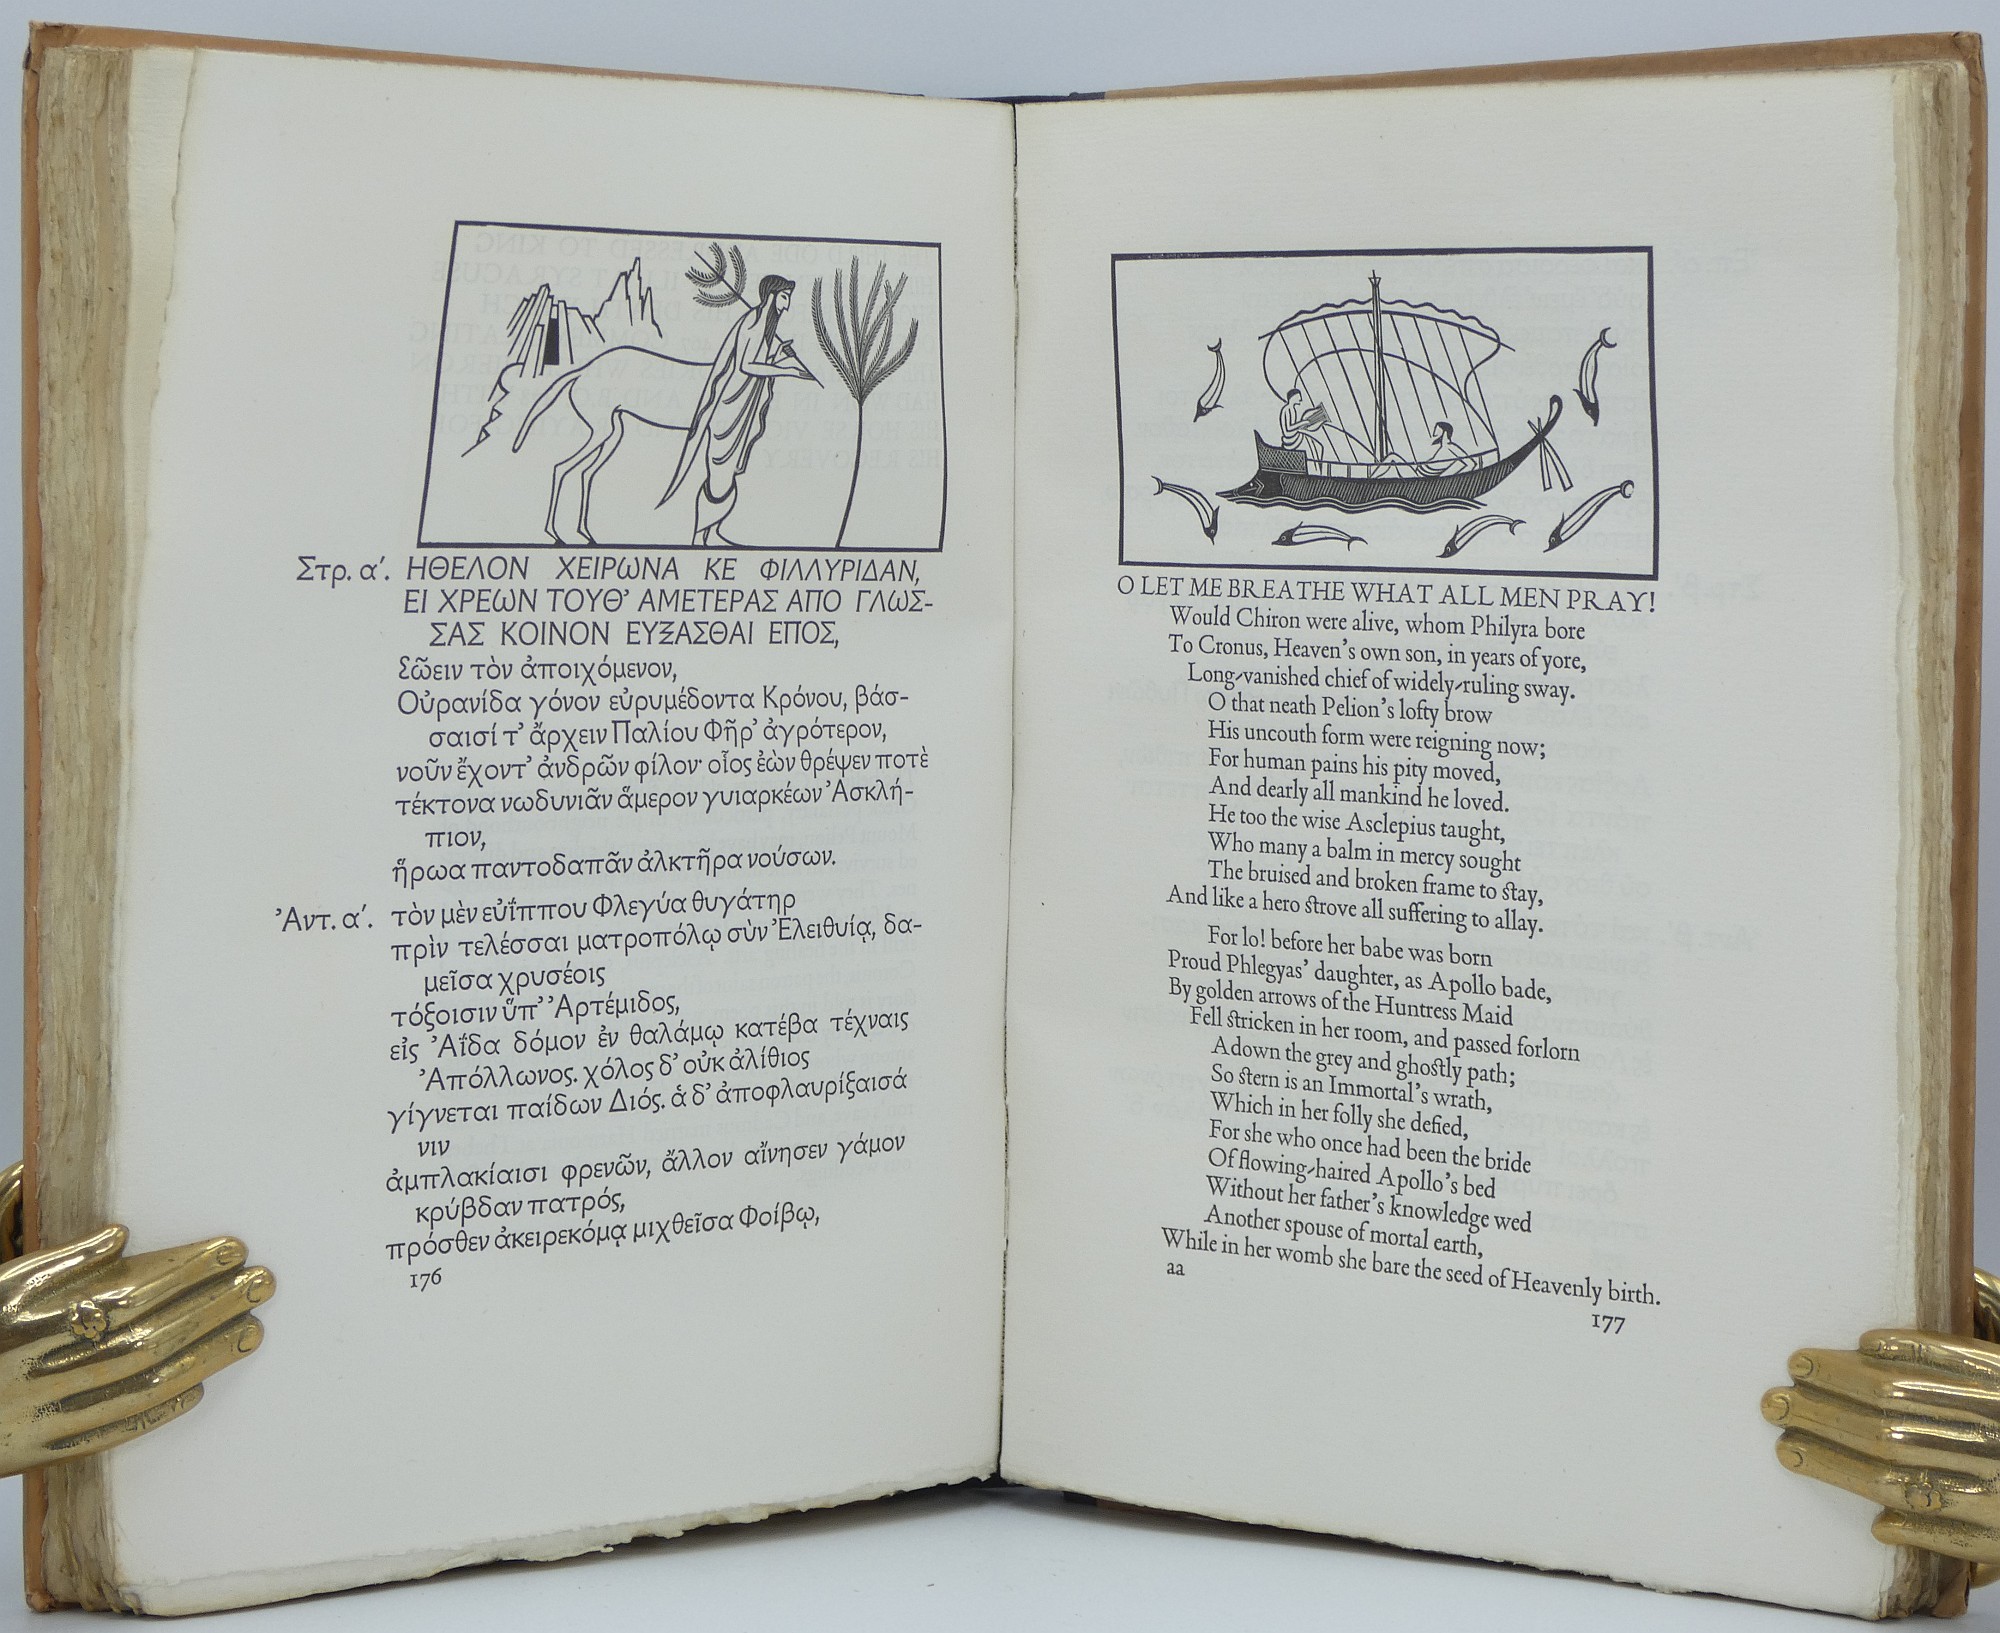 Στρ. α′. ΗΘΕΛΟΝ ΧΕΙΡΩΝΑ ΚΕ ΦΙΛΛΥΡΙΔΑΝ,
ΕΙ ΧΡΕΩΝ ΤΟΥΘ’ ΑΜΕΤΕΡΑΣ ΑΠΟ ΓΛΩΣ-
ΣΑΣ ΚΟΙΝΟΝ ΕΥΞΑΣΘΑΙ ΕΠΟΣ,
ζώειν τὸν ἀποιχόμενον,
Οὐρανίδα γόνον εὐρυμέδοντα Κρόνου, βάσ-
σαισί τ’ ἄρχειν Παλίου Φῆρ’ ἀγρότερον,
νοῦν ἔχοντ’ ἀνδρῶν φίλον· οἷος ἐὼν θρέψεν ποτὲ
τέκτονα νωδυνιᾶν ἅμερον γυιαρκέων Ἀσκλή-
πιον,
ἥρωα παντοδαπᾶν ἀλκτῆρα νούσων.
Ἀντ. α′. τὸν μὲν εὐΐππου Φλεγύα θυγάτηρ
πρὶν τελέσσαι ματροπόλῳ σὺν Ἐλειθυίᾳ, δα-
μεῖσα χρυσέοις
τόξοισιν ὕπ’ Ἀρτέμιδος,
εἰς Ἀΐδα δόμον ἐν θαλάμῳ κατέβα τέχναις
Ἀπόλλωνος. χόλος δ’ οὐκ ἀλίθιος
γίγνεται παίδων Διός. ἁ δ’ ἀποφλαυρίξαισά
νιν
ἀμπλακίαισι φρενῶν, ἄλλον αἴνησεν γάμον
κρύβδαν πατρός,
πρόσθεν ἀκειρεκόμᾳ μιχθεῖσα Φοίβῳ,
176
O LET ME BREATHE WHAT ALL MEN PRAY!
Would Chiron were alive, whom Philyra bore
To Cronus, Heaven’s own son, in years of yore,
Long-vanished chief of widely-ruling sway.
O that neath Pelion’s lofty brow
His uncouth form were reigning now;
For human pains his pity moved,
And dearly all mankind he loved.
He too the wise Asclepius taught,
Who many a balm in mercy sought
The bruised and broken frame to stay,
And like a hero strove all suffering to allay.
For lo! before her babe was born
Proud Phlegyas’ daughter, as Apollo bade,
By golden arrows of the Huntress Maid
Fell stricken in her room, and passed forlorn
Adown the grey and ghostly path;
So stern is an Immortal’s wrath,
Which in her folly she defied,
For she who once had been the bride
Of flowing-haired Apollo’s bed
Without her father’s knowledge wed
Another spouse of mortal earth,
While in her womb she bare the seed of Heavenly birth.
aa
177